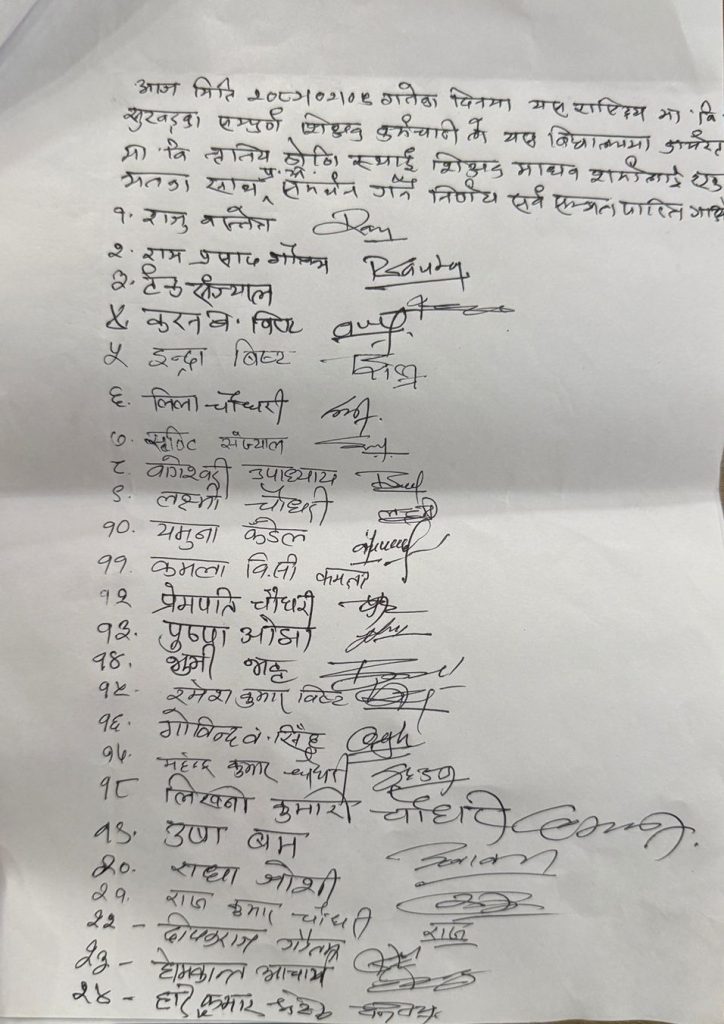 आज मिति २०८२।०२।०५ गतेका दिनमा यस राष्ट्रिय मा. वि
सुरवड्का सम्पुर्ण शिक्षक कर्मचारी ले यस विद्यालयमा कार्यरत
मा वि स्थायी शिक्षक माधव शर्मालाई
प्र.अ.
मतका साथ समर्थन गर्ने निर्णय सर्व सम्मत पारित
१. राजु बस्नेत
२. राम प्रसाद गौतम
३. टेक संज्याल
४ करन ब. विष्ट
५ इन्द्रा बिष्ट
६. लिला चौधरी
७. संज्याल
८ वागेश्वरी उपाध्याय
९. लक्ष्मी चौधरी लक्ष्मी
१०. यमुना कँडेल
११. कमला वि.सी कमला
१२ प्रेमपति चौधरी
१३. पुष्पा ओझा
१४. भुमी भट्ट
१५- रमेश कुमार विष्ट
१६. गोविन्द व. सिँह
१७. महेन्द्र कुमार चौधरी
१८ लिखनी कुमारी चौधरी
१९. उषा बम
२०. राधा जोशी
२१. राज कुमार चौधरी राज
२२ - दीपकराज गौतम
२३ - होमकान्त आचार्य
२४ - हरि कुमार